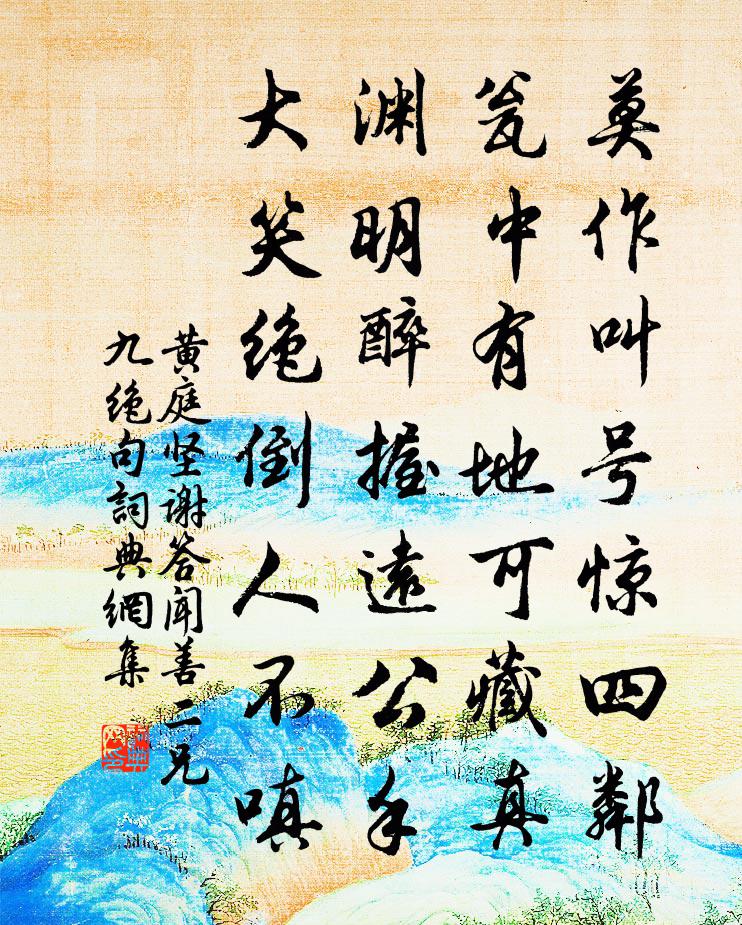 莫作叫号惊四鄰
瓮中有地可藏真
渊明醉握遠公手
大笑绝倒人不嗔
黄庭坚谢答闻善二兄
九绝句詞典網集